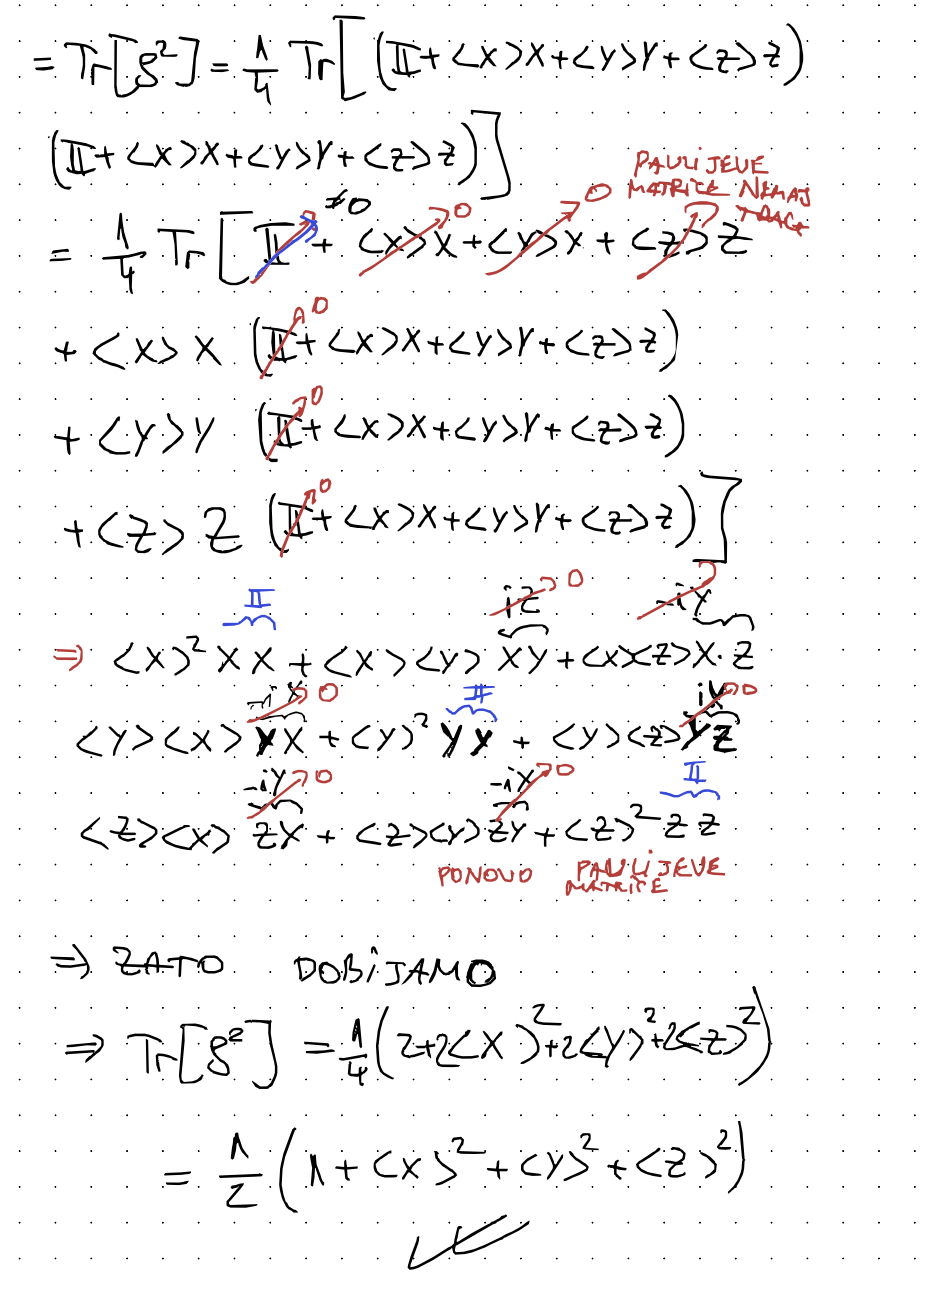 = Tr[ρ²] = 1/4 Tr[(𝕀 + <X>X + <Y>Y + <Z>Z)
(𝕀 + <X>X + <Y>Y + <Z>Z)]
PAULIJEVE
MATRICE NEMAJ
TRAGA
≠0 0 0
= 1/4 Tr[𝕀 + <X>X + <Y>X + <Z>Z
0
+ <X>X (𝕀 + <X>X + <Y>Y + <Z>Z)
0
+ <Y>Y (𝕀 + <X>X + <Y>Y + <Z>Z)
0
+ <Z>Z (𝕀 + <X>X + <Y>Y + <Z>Z)]
𝕀 iZ 0 -iY
⇒ <X>² XX + <X><Y> XY + <X><Z> X·Z
0 𝕀 iX 0
<Y><X> YX + <Y>² YY + <Y><Z> YZ
-iY 0 -iX 0 𝕀
<Z><X> ZX + <Z><Y> ZY + <Z>² ZZ
PONOVO PAULIJEVE
MATRICE
⇒ ZATO DOBIJAMO
⇒ Tr[ρ²] = 1/4 (2+2<X>²+2<Y>²+2<Z>²)
= 1/2 (1 + <X>² + <Y>² + <Z>²)